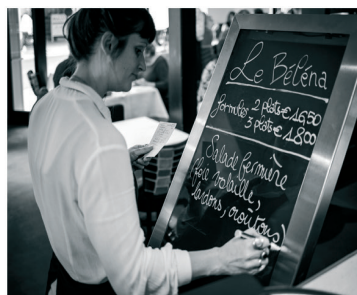 Le Béléna
formules 2 plats € 16,50
3 plats € 18,00
Salade fermière
(foie volaille,
lardons, croûtons)